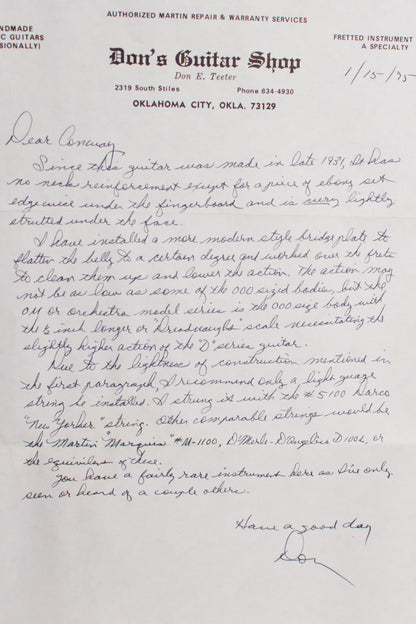 AUTHORIZED MARTIN REPAIR & WARRANTY SERVICES
NDMADE
C GUITARS
SIONALLY)
Don's Guitar Shop
FRETTED INSTRUMENT
A SPECIALTY
Don E. Teeter
2319 South Stiles Phone 634-4930
OKLAHOMA CITY, OKLA. 73129
1/15/75
Dear Conway
Since this guitar was made in late 1931, it has
no neck reinforcement except for a piece of ebony set
edgewise under the fingerboard and is very lightly
strutted under the face.
I have installed a more modern style bridgeplate to
flatten the belly to a certain degree and worked over the frets
to clean them up and lower the action. The action may
not be as low as some of the 000 sized bodies, but the
OM or orchestra model series is the 000 size body with
the ½ inch longer or "Dreadnaught" scale necessitating the
slightly higher action of the "D" series guitar.
Due to the lightness of construction mentioned in
the first paragraph, I recommend only a light guage
string be installed. I strung it with the #5100 Darco
"New Yorker" string. Other comparable strings would be
the "Martin" "Marquis" #M-1100, D'Merle-D'Angelico D100L, or
the equivilent of these.
You have a fairly rare instrument here as I've only
seen or heard of a couple others.
Have a good day
Don